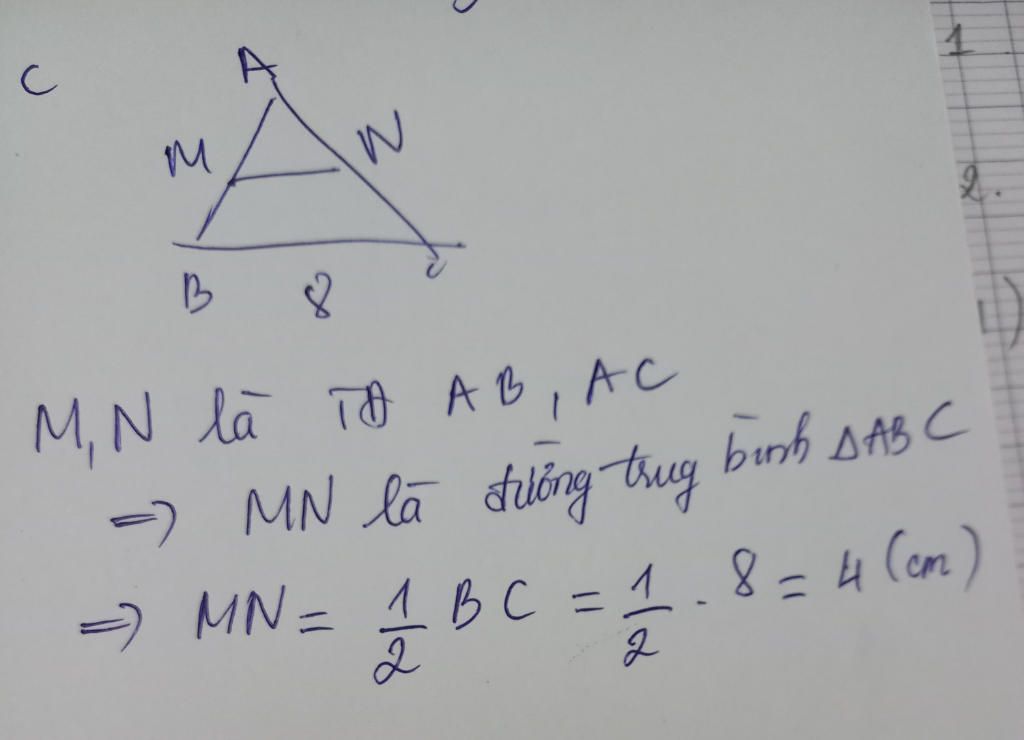 C
A
M N
B 8 C
M, N là TĐ AB, AC
=> MN là đường trug bình ΔABC
=> MN = 1/2 BC = 1/2 . 8 = 4 (cm)
1
2.